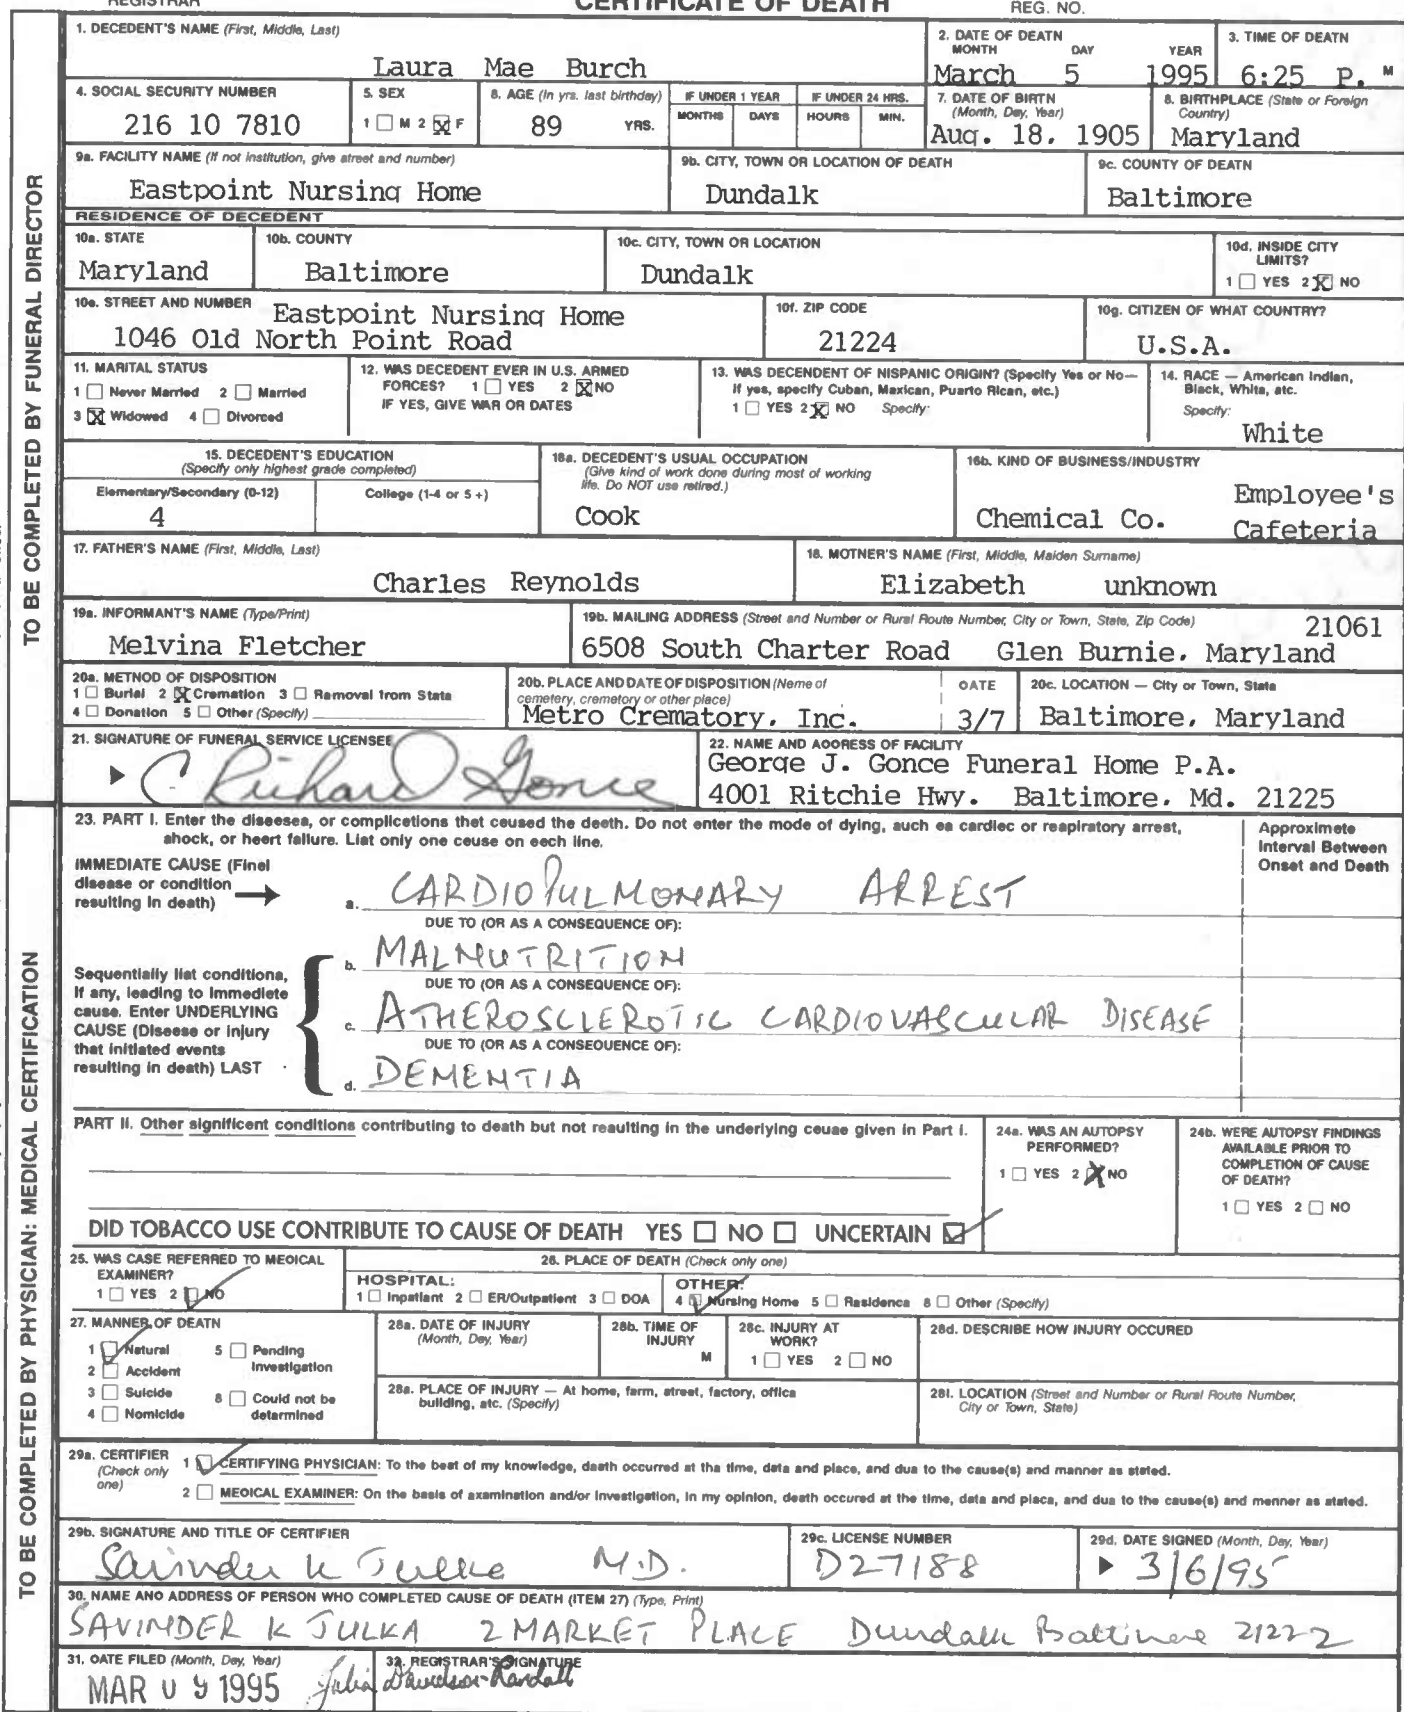 REGISTRAR
CERTIFICATE OF DEATH
REG. NO.
TO BE COMPLETED BY FUNERAL DIRECTOR
1. DECEDENT'S NAME (First, Middle, Last)
Laura Mae Burch
2. DATE OF DEATH
MONTH DAY YEAR
March 5 1995
3. TIME OF DEATH
6:25 P. M
4. SOCIAL SECURITY NUMBER
216 10 7810
5. SEX
1 ☐ M 2 ☒ F
6. AGE (In yrs. last birthday)
89 YRS.
IF UNDER 1 YEAR
MONTHS DAYS
IF UNDER 24 HRS.
HOURS MIN.
7. DATE OF BIRTH
(Month, Day, Year)
Aug. 18, 1905
8. BIRTHPLACE (State or Foreign
Country)
Maryland
9a. FACILITY NAME (If not institution, give street and number)
Eastpoint Nursing Home
9b. CITY, TOWN OR LOCATION OF DEATH
Dundalk
9c. COUNTY OF DEATH
Baltimore
RESIDENCE OF DECEDENT
10a. STATE
Maryland
10b. COUNTY
Baltimore
10c. CITY, TOWN OR LOCATION
Dundalk
10d. INSIDE CITY
LIMITS?
1 ☐ YES 2 ☒ NO
10e. STREET AND NUMBER
Eastpoint Nursing Home
1046 Old North Point Road
10f. ZIP CODE
21224
10g. CITIZEN OF WHAT COUNTRY?
U.S.A.
11. MARITAL STATUS
1 ☐ Never Married 2 ☐ Married
3 ☒ Widowed 4 ☐ Divorced
12. WAS DECEDENT EVER IN U.S. ARMED
FORCES? 1 ☐ YES 2 ☒ NO
IF YES, GIVE WAR OR DATES
13. WAS DECENDENT OF HISPANIC ORIGIN? (Specify Yes or No—
If yes, specify Cuban, Mexican, Puerto Rican, etc.)
1 ☐ YES 2 ☒ NO Specify:
14. RACE — American Indian,
Black, White, etc.
Specify:
White
15. DECEDENT'S EDUCATION
(Specify only highest grade completed)
Elementary/Secondary (0-12)
4
College (1-4 or 5+)
16a. DECEDENT'S USUAL OCCUPATION
(Give kind of work done during most of working
life. Do NOT use retired.)
Cook
16b. KIND OF BUSINESS/INDUSTRY
Employee's
Chemical Co. Cafeteria
17. FATHER'S NAME (First, Middle, Last)
Charles Reynolds
18. MOTHER'S NAME (First, Middle, Maiden Surname)
Elizabeth unknown
19a. INFORMANT'S NAME (Type/Print)
Melvina Fletcher
19b. MAILING ADDRESS (Street and Number or Rural Route Number, City or Town, State, Zip Code)
21061
6508 South Charter Road Glen Burnie, Maryland
20a. METHOD OF DISPOSITION
1 ☐ Burial 2 ☒ Cremation 3 ☐ Removal from State
4 ☐ Donation 5 ☐ Other (Specify)
20b. PLACE AND DATE OF DISPOSITION (Name of
cemetery, crematory or other place)
Metro Crematory, Inc.
DATE
3/7
20c. LOCATION — City or Town, State
Baltimore, Maryland
21. SIGNATURE OF FUNERAL SERVICE LICENSEE
C Richard Gonce
22. NAME AND ADDRESS OF FACILITY
George J. Gonce Funeral Home P.A.
4001 Ritchie Hwy. Baltimore, Md. 21225
TO BE COMPLETED BY PHYSICIAN: MEDICAL CERTIFICATION
23. PART I. Enter the diseases, or complications that caused the death. Do not enter the mode of dying, such as cardiac or respiratory arrest,
shock, or heart failure. List only one cause on each line.
Approximate
Interval Between
Onset and Death
IMMEDIATE CAUSE (Final
disease or condition
resulting in death)
a. CARDIOPULMONARY ARREST
DUE TO (OR AS A CONSEQUENCE OF):
b. MALNUTRITION
DUE TO (OR AS A CONSEQUENCE OF):
Sequentially list conditions,
if any, leading to immediate
cause. Enter UNDERLYING
CAUSE (Disease or injury
that initiated events
resulting in death) LAST
c. ATHEROSCLEROTIC CARDIOVASCULAR DISEASE
DUE TO (OR AS A CONSEQUENCE OF):
d. DEMENTIA
PART II. Other significant conditions contributing to death but not resulting in the underlying cause given in Part I.
24a. WAS AN AUTOPSY
PERFORMED?
1 ☐ YES 2 ☒ NO
24b. WERE AUTOPSY FINDINGS
AVAILABLE PRIOR TO
COMPLETION OF CAUSE
OF DEATH?
1 ☐ YES 2 ☐ NO
DID TOBACCO USE CONTRIBUTE TO CAUSE OF DEATH YES ☐ NO ☐ UNCERTAIN ☑
25. WAS CASE REFERRED TO MEDICAL
EXAMINER?
1 ☐ YES 2 ☑ NO
26. PLACE OF DEATH (Check only one)
HOSPITAL:
1 ☐ Inpatient 2 ☐ ER/Outpatient 3 ☐ DOA
OTHER:
4 ☑ Nursing Home 5 ☐ Residence 6 ☐ Other (Specify)
27. MANNER OF DEATH
1 ☑ Natural 5 ☐ Pending
Investigation
2 ☐ Accident
3 ☐ Suicide 6 ☐ Could not be
determined
4 ☐ Homicide
28a. DATE OF INJURY
(Month, Day, Year)
28b. TIME OF
INJURY
M
28c. INJURY AT
WORK?
1 ☐ YES 2 ☐ NO
28d. DESCRIBE HOW INJURY OCCURED
28e. PLACE OF INJURY — At home, farm, street, factory, office
building, etc. (Specify)
28f. LOCATION (Street and Number or Rural Route Number,
City or Town, State)
29a. CERTIFIER
(Check only
one)
1 ☑ CERTIFYING PHYSICIAN: To the best of my knowledge, death occurred at the time, date and place, and due to the cause(s) and manner as stated.
2 ☐ MEDICAL EXAMINER: On the basis of examination and/or investigation, in my opinion, death occured at the time, date and place, and due to the cause(s) and manner as stated.
29b. SIGNATURE AND TITLE OF CERTIFIER
Savinder K Julka M.D.
29c. LICENSE NUMBER
D27188
29d. DATE SIGNED (Month, Day, Year)
3/6/95
30. NAME AND ADDRESS OF PERSON WHO COMPLETED CAUSE OF DEATH (ITEM 27) (Type, Print)
SAVINDER K JULKA 2 MARKET PLACE Dundalk Baltimore 21222
31. DATE FILED (Month, Day, Year)
MAR 09 1995
32. REGISTRAR'S SIGNATURE
Julia Davidson-Randall